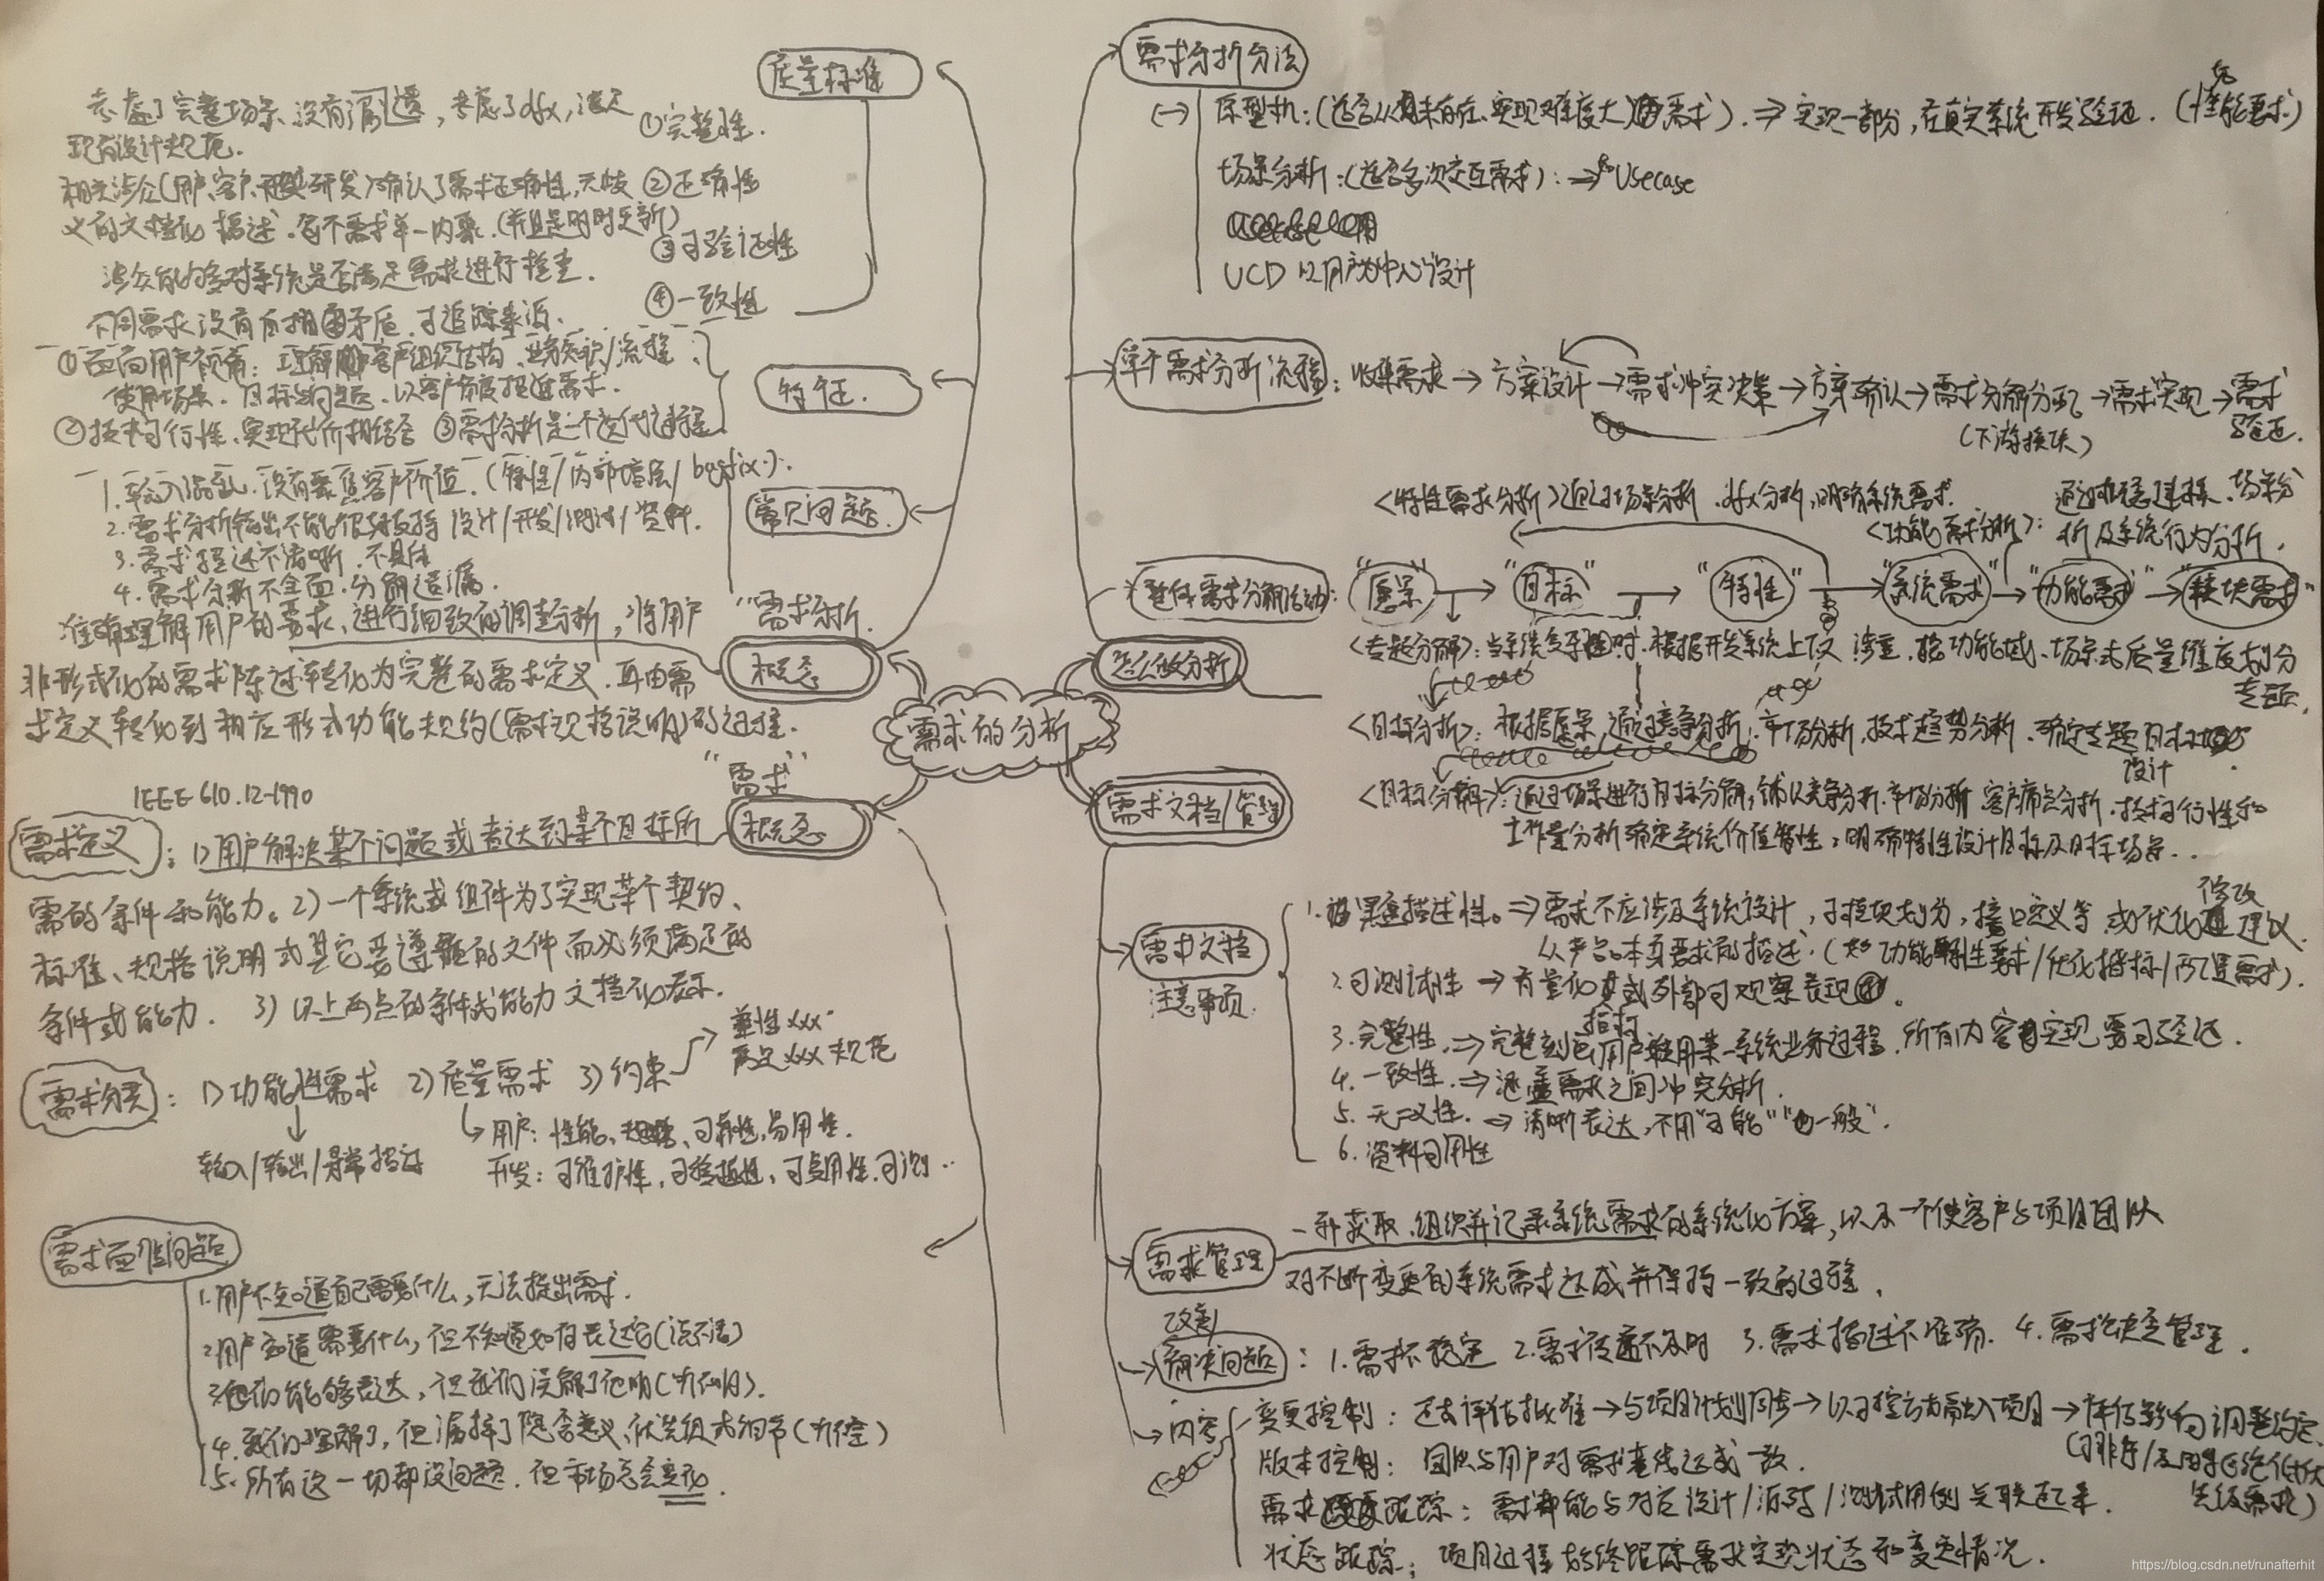 质量标准
考虑了完整场景、没有遗漏,考虑了dfx,满足
现有设计规范.
①完整性.
相关涉众(用户、客户、研发)确认了需求正确性,无歧
②正确性
义的文档化描述.每个需求单一内聚.(并且是即时更新)
③可验证性
涉众能够对系统是否满足需求进行检查.
④一致性
不同需求没有互相矛盾.可追踪来源.
特征.
①面向用户视角:理解客户组织结构、业务知识/流程、
使用场景、目标与问题、以客户角度描述需求.
②技术可行性、实现代价相结合 ③需求分析是一个迭代过程.
常见问题.
1.输入混乱.没有聚焦客户价值.(特性/内部增强/bugfix).
2.需求分析输出不能很好支持设计/开发/测试/资料.
3.需求描述不清晰.不具体
4.需求分析不全面.分解遗漏.
"需求分析.
概念
准确理解用户的要求、进行细致的调查分析,将用户
非形式化的需求陈述转化为完整的需求定义.再由需
求定义转化到相应形式功能规约(需求规格说明)的过程.
需求的分析
"需求"
概念
IEEE 610.12-1990
需求定义:1)用户解决某个问题或者达到某个目标所
需的条件和能力。2)一个系统或组件为了实现某个契约、
标准、规格说明或其它要遵循的文件而必须满足的
条件或能力. 3)以上两点的条件或能力文档化表示.
需求分类:1)功能性需求 2)质量需求 3)约束
兼性xxx.
满足xxx规范
输入/输出/异常描述
用户:性能、可靠性,易用性.
开发:可维护性,可移植性,可复用性.可测..
需求面临问题
1.用户不知道自己需要什么,无法提出需求.
2.用户知道需要什么,但不知道如何表达它(说不清)
3.他们能够表达,但我们误解了他们
4.我们理解了,但漏掉了隐含意义、优先级或细节
5.所有这一切都没问题.但市场总会变化.
需求分析方法
原型机:(适合从未有过、实现难度大的需求).⇒实现一部分,在真实系统开发验证.(性能要求)
场景分析:(适合多次交互需求):⇒Usecase
UCD 以用户为中心设计
单个需求分析流程:收集需求→方案设计→需求冲突决策→方案确认→需求分解分配→需求实现→需求
验证.
(下游模块)
<特性需求分析>通过场景分析.dfx分析,明确系统需求.
<功能需求分析>:场景分
析及系统行为分析.
整体需求分解活动:"愿景"→"目标"→"特性"→"系统需求"→"功能需求"→"模块需求"
怎么做分析
<专题分解>:当系统复杂时.根据开发系统上下文.按功能域、场景或质量维度划分
专题.
<目标分析>:根据愿景,通过竞争分析,市场分析,技术趋势分析.确定专题目标
设计
<目标分解>:通过场景进行目标分解,辅以竞争分析.市场分析.客户痛点分析.技术可行性和
工作量分析确定系统价值特性;明确特性设计目标及目标场景..
需求文档/管理
需求文档
注意事项.
修改
1.描述性。⇒需求不应涉及系统设计,子模块划分,接口定义等,或优化建议.
从产品本身要求的描述.(如功能特性要求/优化指标/配置需求).
2.可测试性→有量化或外部可观察表现.
3.完整性.⇒完整刻画用户使用某一系统业务过程.所有内容实现要可验证.
4.一致性.⇒涵盖需求之间冲突分析.
5.无二义性.⇒清晰表达,不用"可能""一般".
6.资料可用性
需求管理
一种获取.组织并记录系统需求的系统化方案,以及一个使客户与项目团队
对不断变更的系统需求达成并保持一致的过程.
改善
解决问题:1.需求不稳定 2.需求传递不及时 3.需求描述不准确. 4.需求缺乏管理.
→内容
变更控制:还去评估批准→与项目计划同步→以可控方式融入项目→评估影响调整约定.
版本控制:团队与用户对需求基线达成一致.
需求跟踪:需求都能与对应设计/源码/测试用例关联起来.
先级需求)
状态跟踪:项目过程始终跟踪需求实现状态和变更情况.
https://blog.csdn.net/runafterhit